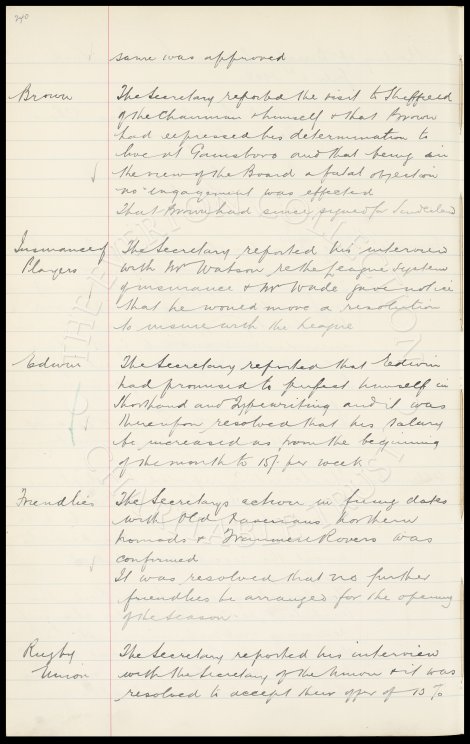 240
same was approved
Brown
The Secretary reported the visit to Sheffield
of the Chairman & himself & that Brown
had expressed his determination to
live at Gainsboro and that being in
the view of the Board a fatal objection
no engagement was effected
That Brown had since signed for Sunderland
Insurance of
Players
The Secretary reported his interview
with Mr Watson re the League System
of insurance & Mr Wade gave notice
that he would move a resolution
to insure with the League
Edwin
The Secretary reported that Edwin
had promised to perfect himself in
Shorthand and Typewriting and it was
thereupon resolved that his salary
be increased as from the beginning
of the month to 15/- per week
Friendlies
The Secretary's action in fixing dates
with Old Xaverians Northern
Nomads & Tranmere Rovers was
confirmed
It was resolved that no further
friendlies be arranged for the opening
of the season
Rugby
Union
The Secretary reported his interview
with the Secretary of the Union & it was
resolved to accept their offer of
THE EVERTON COLLECTION